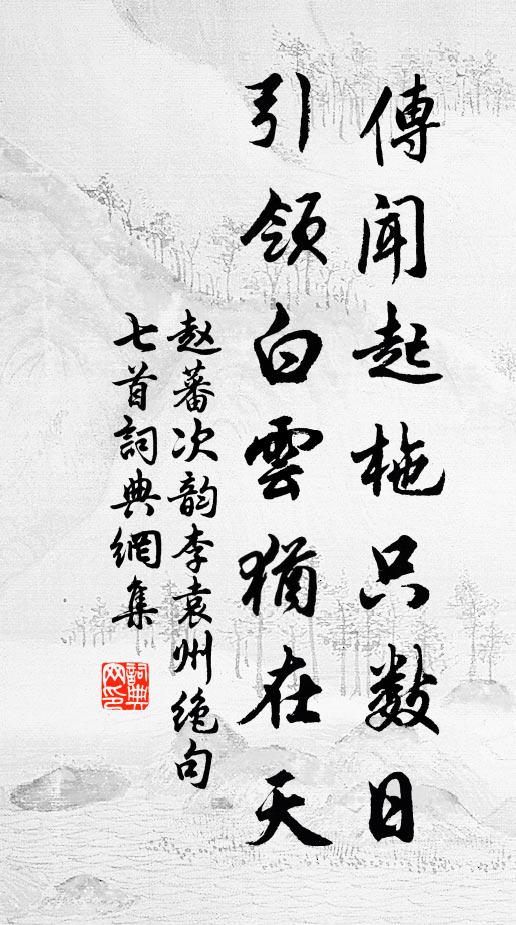 傳聞起柂只數日
引領白雲猶在天
赵蕃次韵李袁州绝句
七首詞典網集
詞典網印